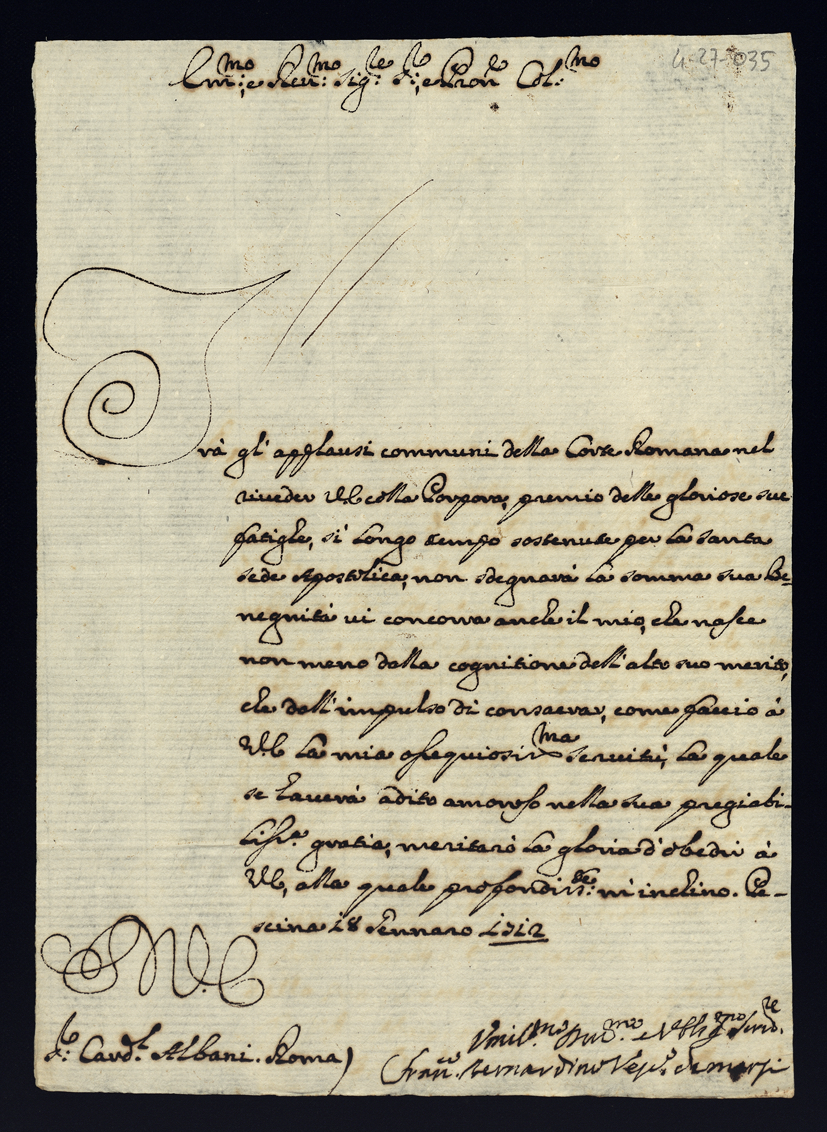 4-27-035
Em:mo e Rev:mo Sig:re S:re, e Pron:e Col:mo
Trà gl'applausi communi della Corte Romana nel
riveder V.E. colla Porpora, premio delle gloriose sue
fatighe, sì longo tempo sostenute per la santa
sede Apostolica, non sdegnarà la somma sua Be=
negnità vi concorra anche il mio, che nasce
non meno dalla cognitione dell'alto suo merito,
che dall'impulso di consacrar, come faccio à
V.E. la mia ossequiosissma servitù, la quale
se haverà adito amoroso nella sua pregiabi-
liss:a gratia, meritarò la gloria d'obedir à
V.E., alla quale profondiss:te m'inchino. Pe-
scina 18 Gennaro 1712
D.V.E.
S:r Card:l Albani. Roma)
Umil:mo Dev:mo e Obligmo Servid:re
Fran:co Bernardino Vesc:o de Marsi